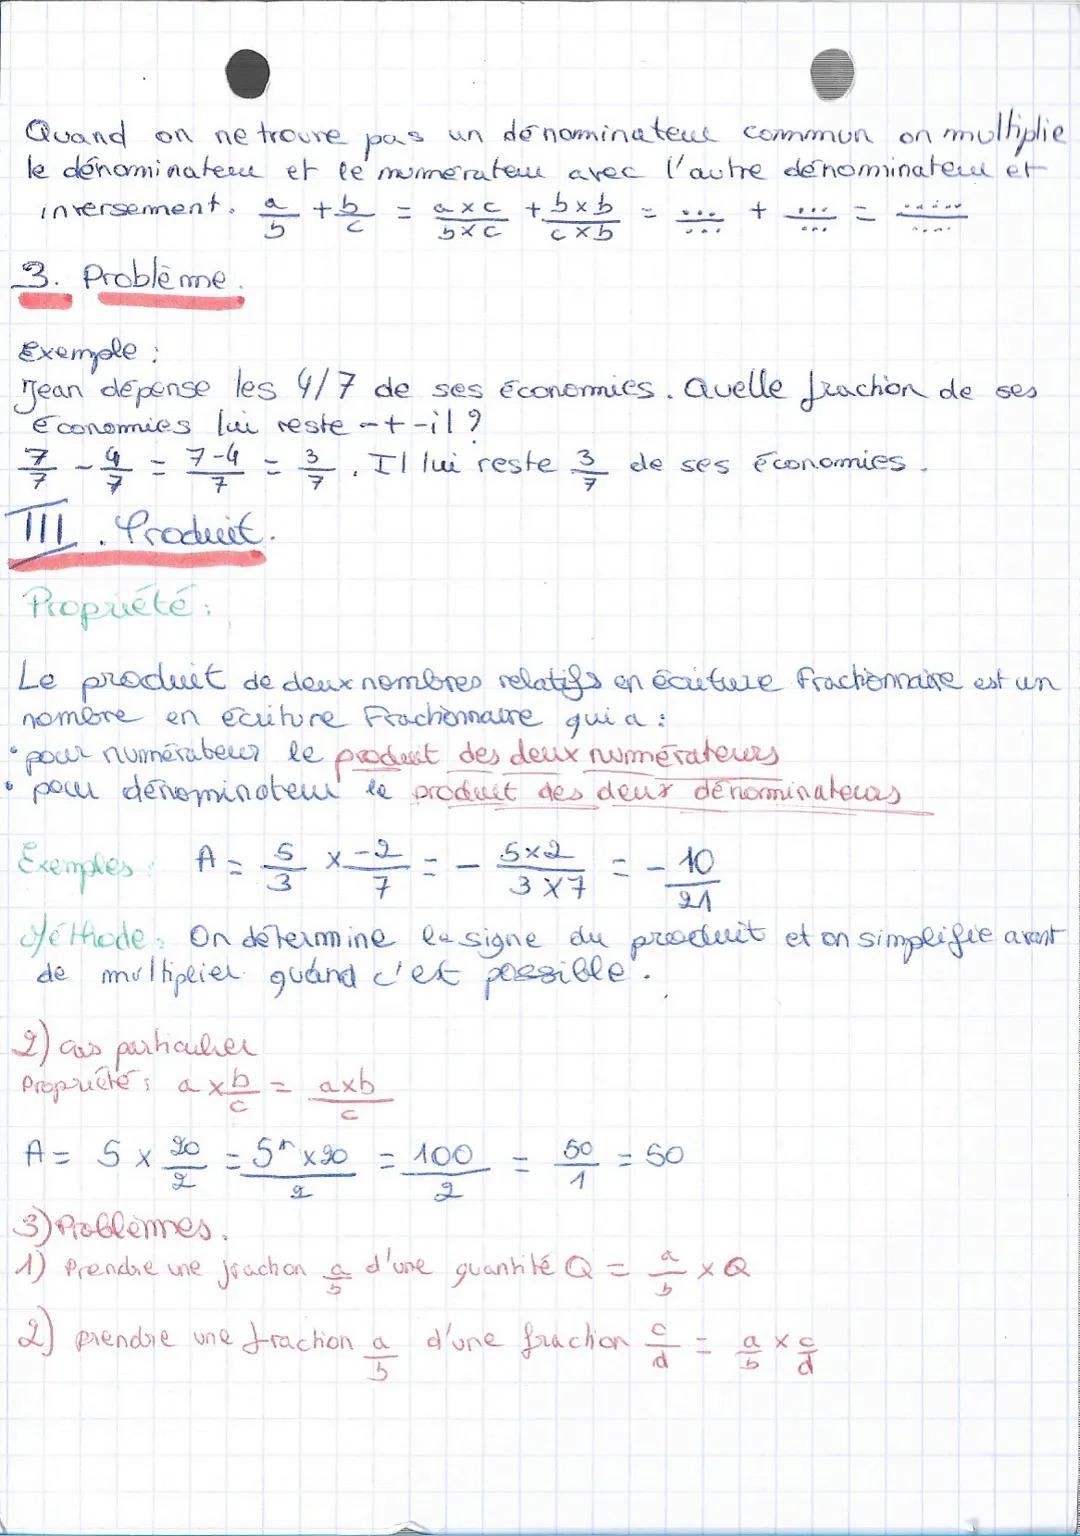 Quand on ne trouve pas un dénominateur commun on multiplie
le dénominateur et le numérateur avec l'autre dénominateur et
inversement. a/b + b/c = a×c/b×c + b×b/c×b = .../... + .../... = ....../.....
3. Problème.
Exemple :
Jean dépense les 4/7 de ses économies. Quelle fraction de ses
économies lui reste-t-il ?
7/7 - 4/7 = 7-4/7 = 3/7. Il lui reste 3/7 de ses économies.
III. Produit.
Propriété :
Le produit de deux nombres relatifs en écriture fractionnaire est un
nombre en écriture fractionnaire qui a :
• pour numérateur le produit des deux numérateurs
• pour dénominateur le produit des deux dénominateurs
Exemples : A = 5/3 × -2/7 = - 5×2/3×7 = - 10/21
Méthode : On détermine le signe du produit et on simplifie avant
de multiplier quand c'est possible.
2) cas particulier
Propriété : a × b/c = a×b/c
A = 5 × 20/2 = 5×20/2 = 100/2 = 50/1 = 50
3) Problèmes.
1) Prendre une fraction a/b d'une quantité Q = a/b × Q
2) prendre une fraction a/b d'une fraction c/d = a/b × c/d